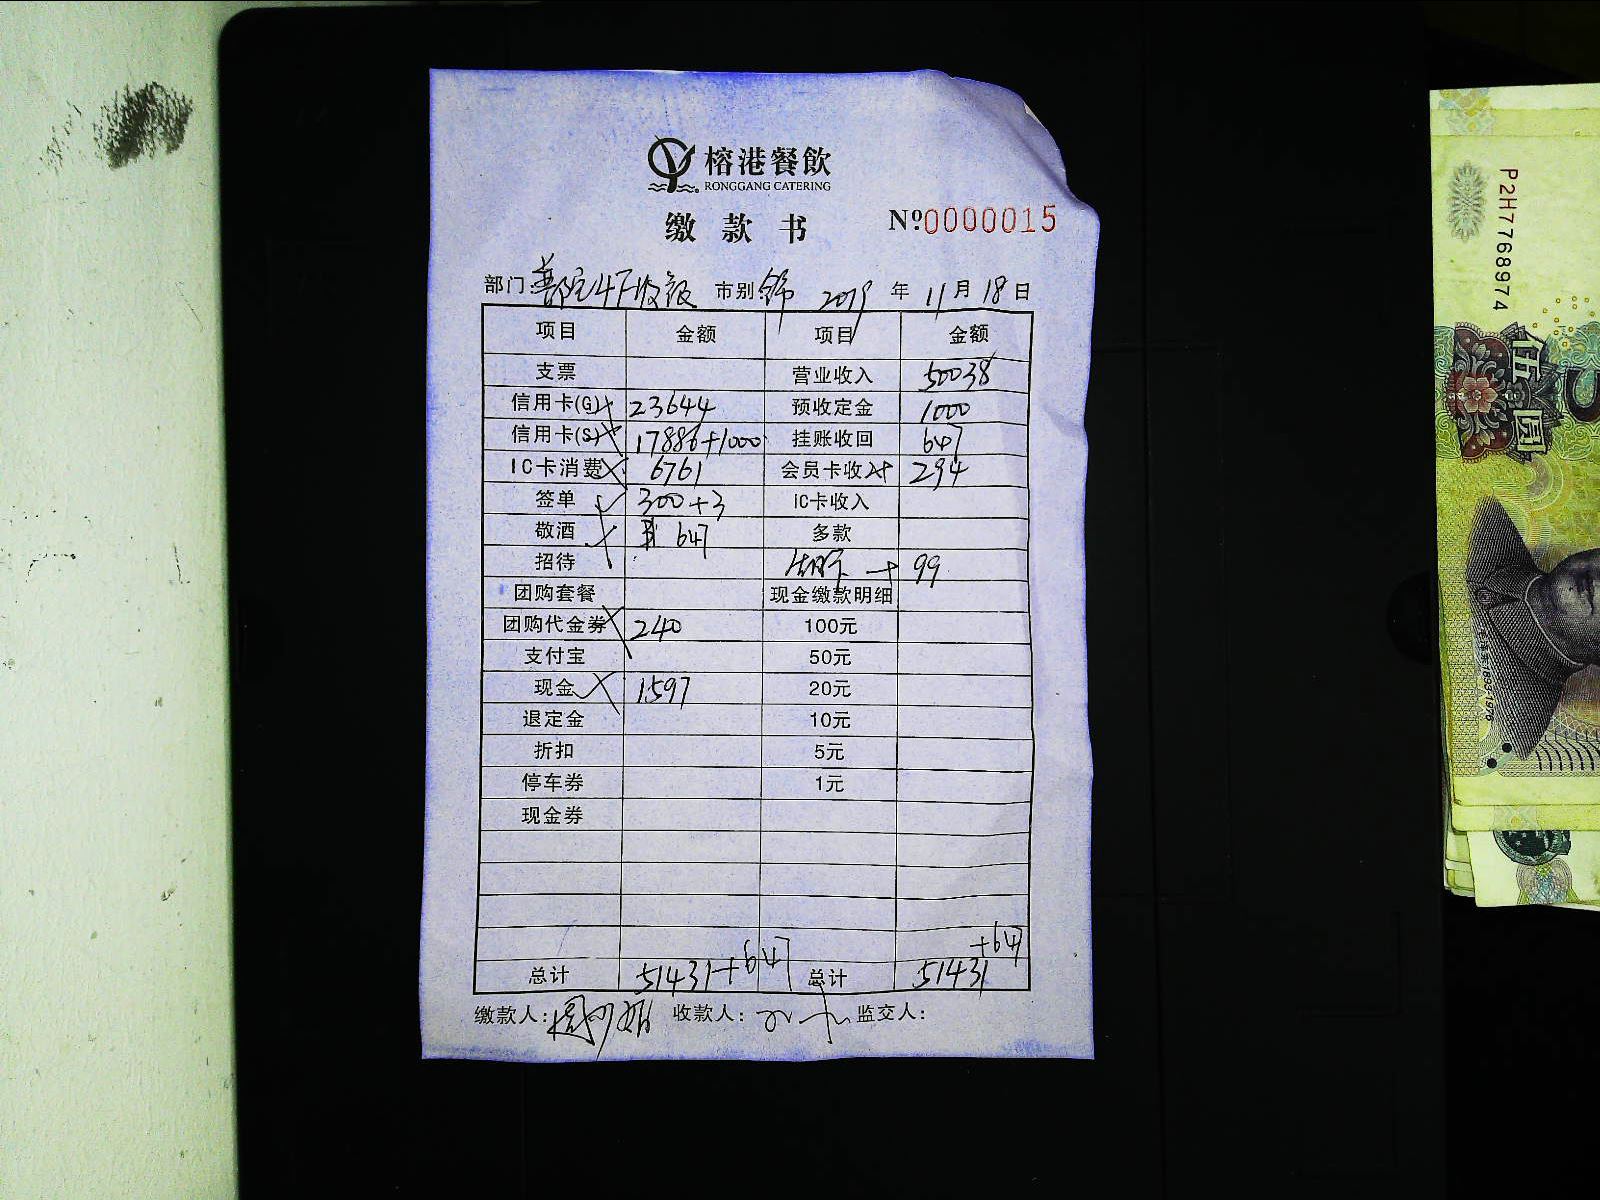 榕港餐飲
RONGGANG CATERING
缴款书 №0000015
部门: 4F 市别: 2019年11月18日
项目 金额 项目 金额
支票 营业收入 50038
信用卡(G) 23644 预收定金 1000
信用卡(S) 17886+1000 挂账收回 647
IC卡消费 6761 会员卡收入 294
签单 300+3 IC卡收入
敬酒 647 多款
招待 99
团购套餐 现金缴款明细
团购代金券 240 100元
支付宝 50元
现金 1597 20元
退定金 10元
折扣 5元
停车券 1元
现金券
总计 51431+647 总计 51431+647
缴款人: 收款人: 监交人:
P2H7768974
伍圆
5